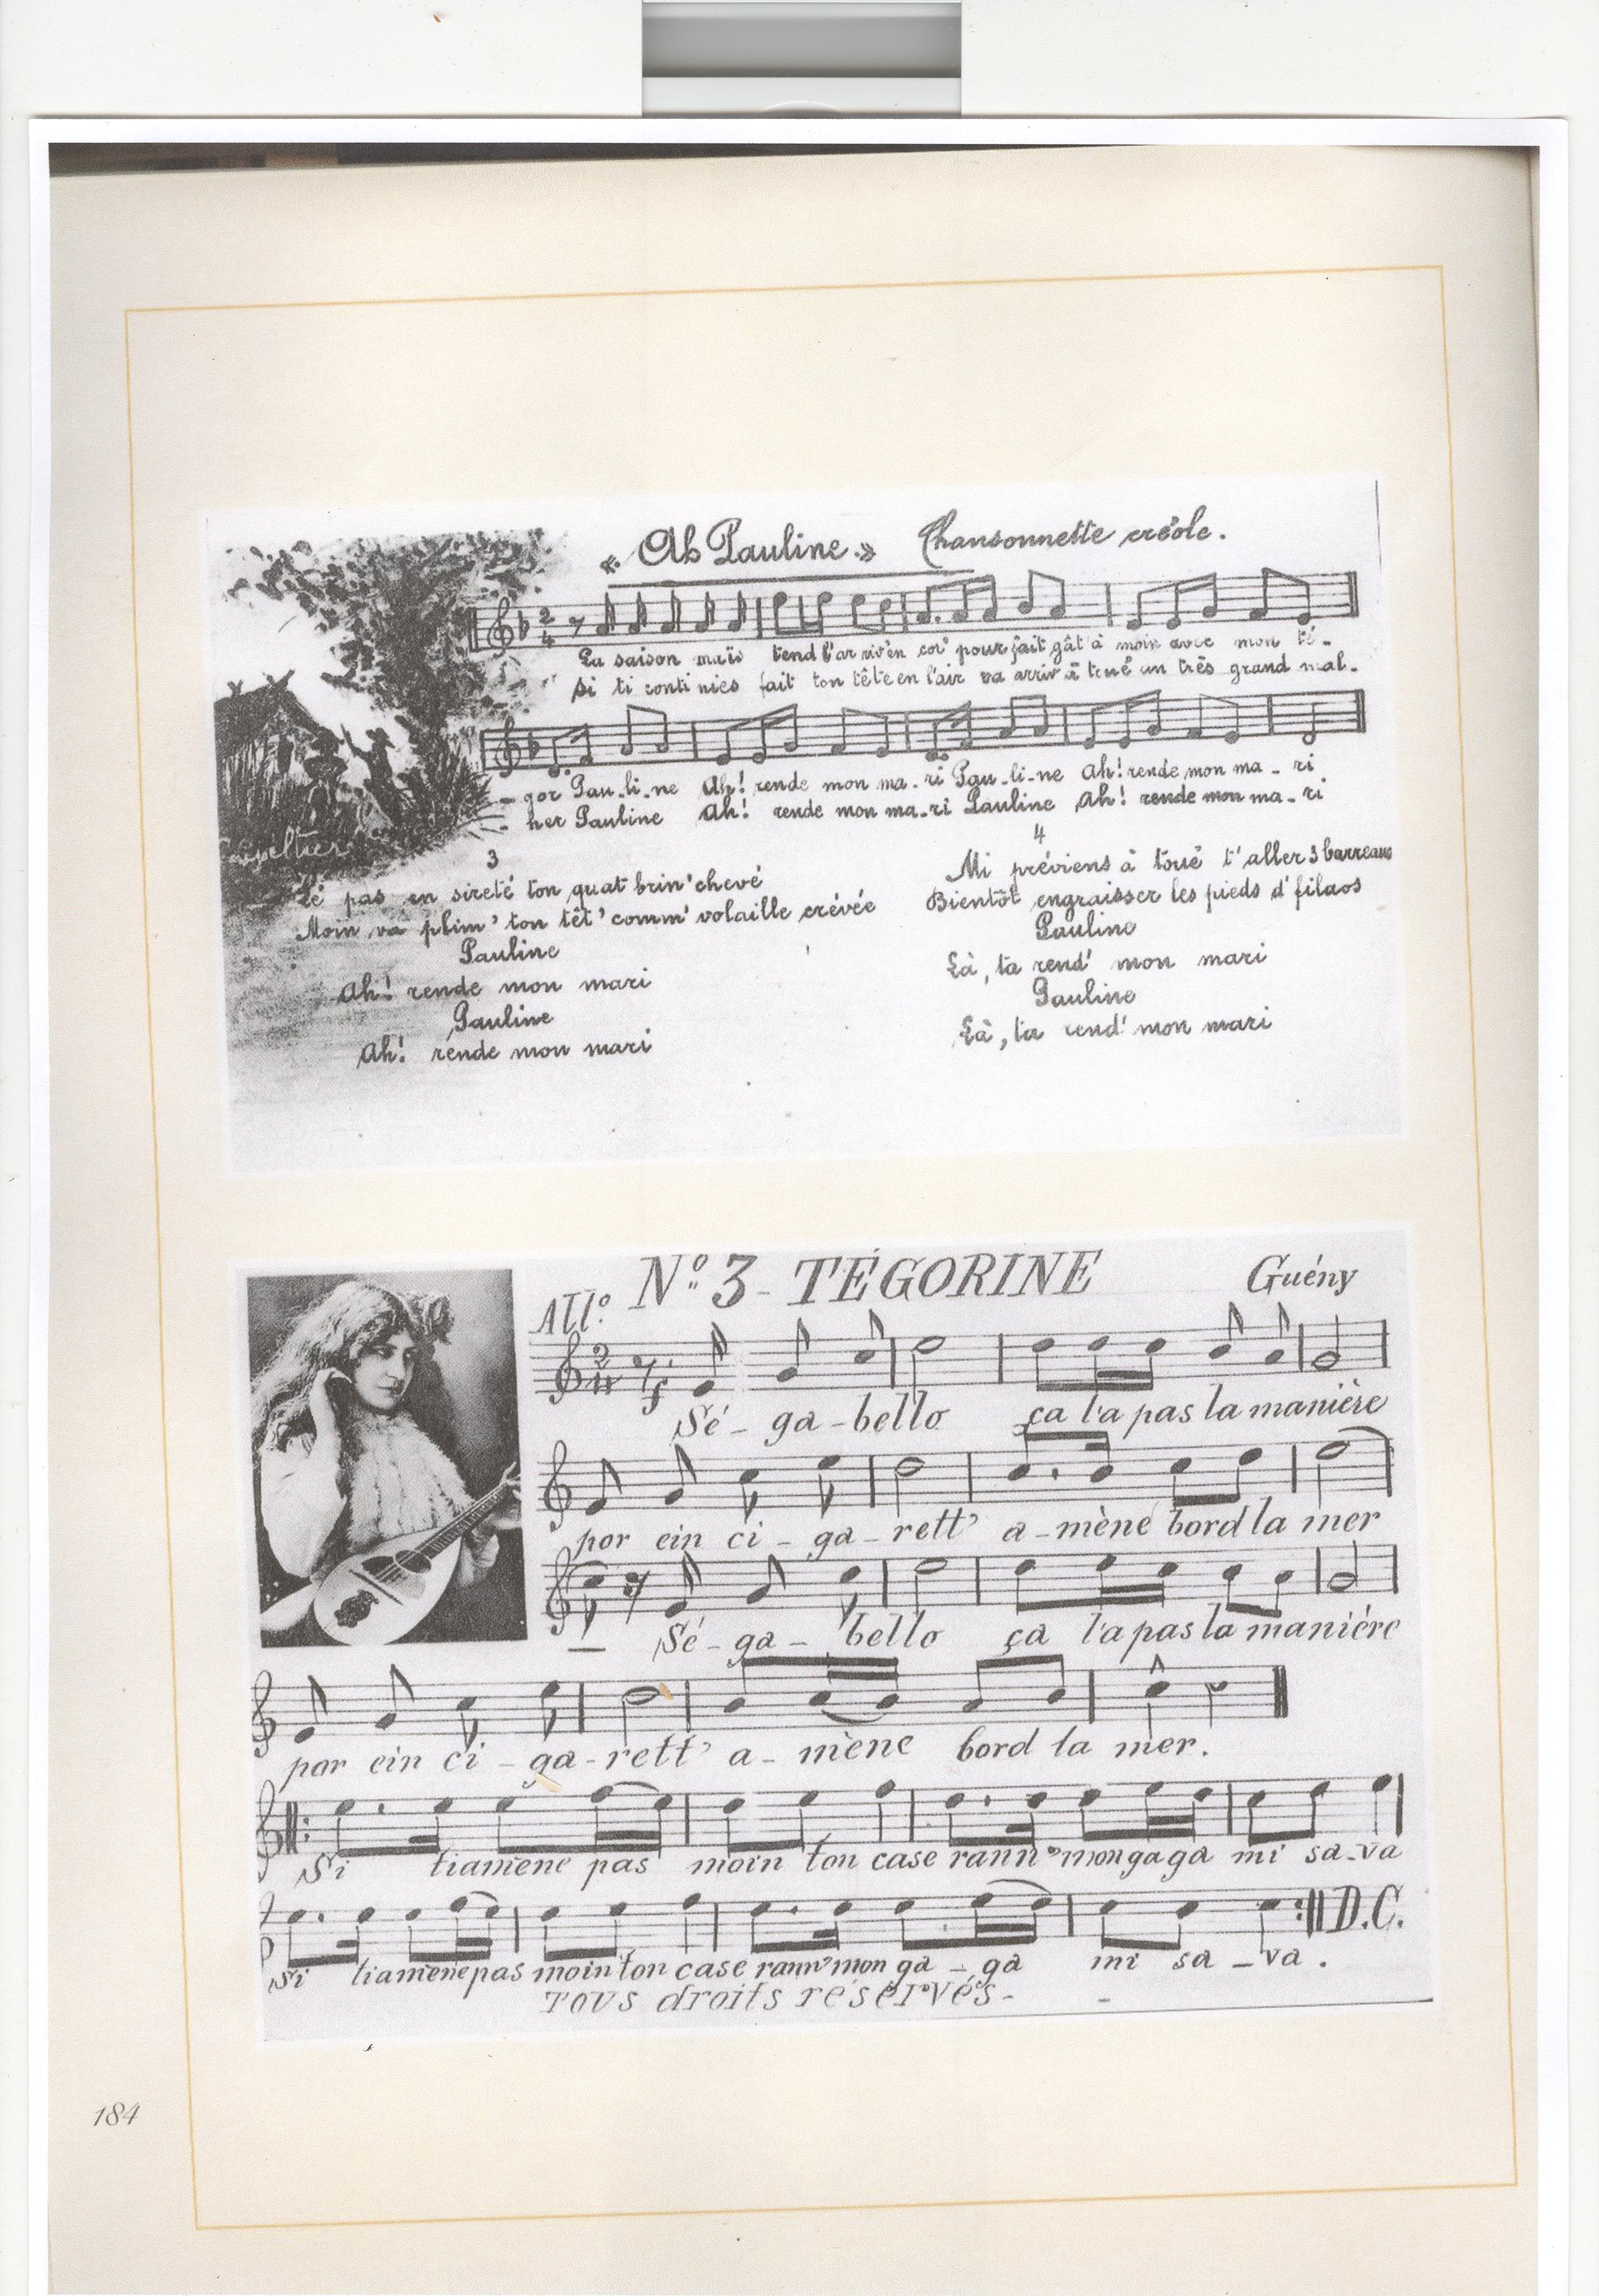 « Ah Pauline » Chansonnette créole.
La saison maïs tend l'ar riv'en cor' pour fait gât à moin avec mon té-
Si ti conti nies fait ton tête en l'air va arriv'à toué un très grand mal-
- gor Pau-li-ne Ah! rende mon ma-ri Pau-li-ne Ah! rende mon ma-ri
- her Pauline Ah! rende mon ma-ri Pauline Ah! rende mon ma-ri
3
Lé pas en sireté ton quat brin' chevé
Moin va plim' ton têt' comm' volaille crévée
Pauline
Ah! rende mon mari
Pauline
Ah! rende mon mari
4
Mi préviens à toué t'aller 3 barreaux
Bientôt engraisser les pieds d'filaos
Pauline
Là, ta rend' mon mari
Pauline
Là, ta rend' mon mari
N° 3 - TÉGORINE Guény
All°
f
Sé-ga-bello ça l'a pas la manière
por ein ci-ga-rett' a-mène bord la mer
- Sé-ga-bello ça l'a pas la manière
por ein ci-ga-rett' a-mène bord la mer.
Si tiamène pas moin ton case rann' mon gaga mi sa-va
D.C.
Si tiamène pas moin ton case rann' mon ga-ga mi sa-va.
TOUS droits réservés-
184